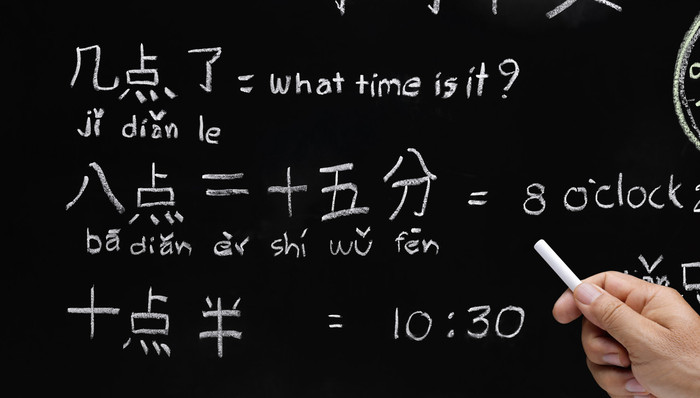 几点了 = what time is it?
jǐ diǎn le
八点二十五分 = 8 o'clock 2
bā diǎn èr shí wǔ fēn
十点半 = 10:30